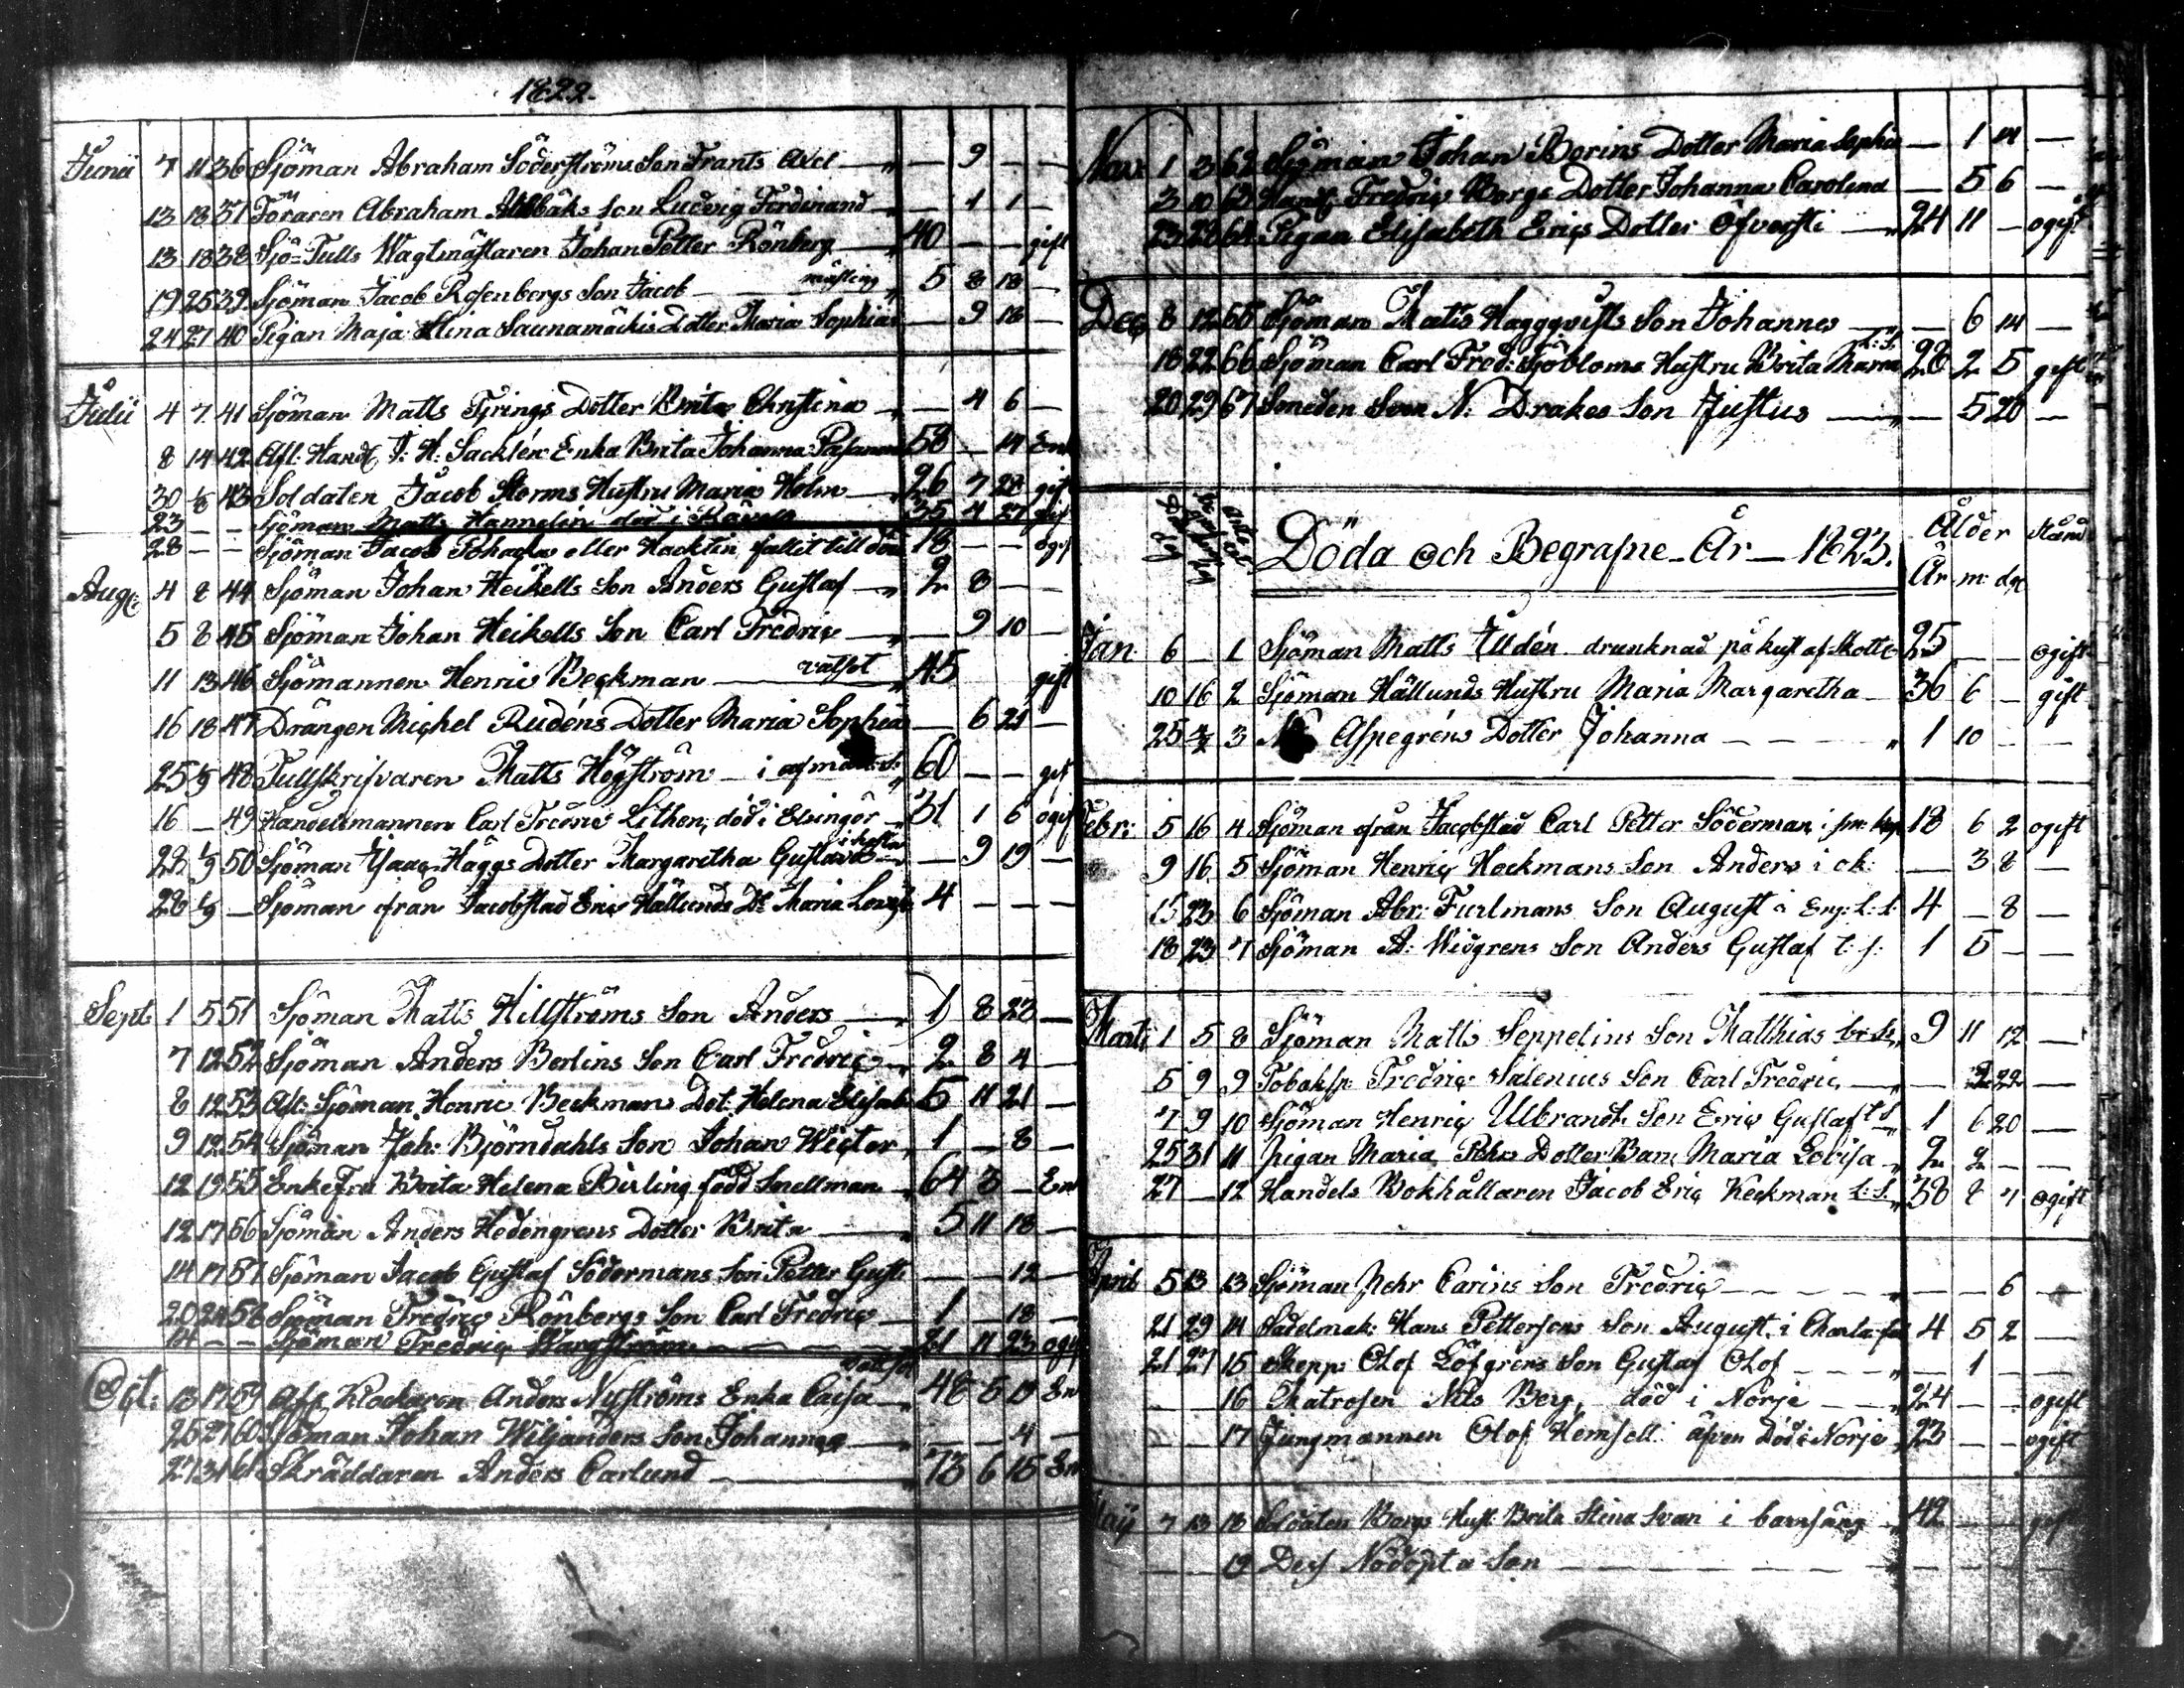 1822.
Junii 7 11 36 Sjöman Abraham Söderströms Son Frants Axel — — 9 — —
13 18 37 Föraren Abraham Ahlbäks Son Ludvig Ferdinand — — 1 1 —
13 18 38 Sjö-Tulls Wagtmästaren Johan Petter Rönberg — 40 — — gift
19 25 39 Sjöman Jacob Rosenbergs Son Jacob — mäsling 5 8 18 —
24 27 40 Pigan Maja Stina Saunamäckis Dotter Maria Sophia — 9 18 —
Julii 4 7 41 Sjöman Matts Tjrings Dotter Brita Christina — — 4 6 —
8 14 42 Afl: Handl. J: H: Sacklén Enka Brita Johanna 58 — 14 Enk
30 4/8 43 Soldaten Jacob Storms Hustru Maria Holm — 26 7 28 gift
23 — — Sjöman Matts Hannelin död i 35 4 27 gift
28 — — Sjöman Jacob eller Hacklin fallit till död 18 — — ogift
Aug: 4 8 44 Sjöman Johan Heikells Son Anders Gustaf — 2 8 — —
5 8 45 Sjöman Johan Heikells Son Carl Fredric — — 9 10 —
11 13 46 Sjömannen Henric Beckman — vatsot 45 gift
16 18 47 Drängen Michel Rudéns Dotter Maria Sophia — 6 21 —
25 1/9 48 Tullskrifvaren Matts Högström — i 60 — — gift
16 — 49 Handelsmannen Carl Fredric Lithen, död i Elsingör 31 1 6 ogift
28 1/9 50 Sjöman Isaac Häggs Dotter Margaretha Gustava i hosta — 9 19 —
28 1/9 — Sjöman ifrån Jacobstad Eric Hällunds Dr Maria Lovisa 4 — — —
Sept: 1 5 51 Sjöman Matts Hillströms Son Anders — 1 8 28 —
7 12 52 Sjöman Anders Berlins Son Carl Fredric 2 8 4 —
8 12 53 Afl: Sjöman Henric Beckmans Dot: Helena Elisab 5 11 21 —
9 12 54 Sjöman Joh: Björndahls Son Johan Wictor 1 — 8 —
12 19 55 Enke Fru Brita Helena Birling född Snellman 64 3 — Enk
12 17 56 Sjöman Anders Hedengrens Dotter Brita — 5 11 18 —
14 17 57 Sjöman Jacob Gustaf Södermans Son Petter Gust: — — 12 —
20 24 58 Sjöman Fredric Rönbergs Son Carl Fredric — 1 — 18 —
14 — — Sjöman Fredric Wargström — 21 11 23 ogift
Oct: 13 17 59 Afl. Klockaren Anders Nyströms Enka Caisa vattsot 48 5 19 Enk
25 27 60 Sjöman Johan Wiljanders Son Johannes — — — 4 —
27 31 61 Skräddaren Anders Carlund — 73 6 15 Enk
Nov: 1 3 62 Sjöman Johan Borins Dotter Maria Sophia — 1 14 —
3 10 63 Handl: Fredric Borgs Dotter Johanna Carolina — 5 6 —
23 28 64 Pigan Elisabeth Erics Dotter Öfversti — 24 11 — ogift
Dec: 8 12 65 Sjöman Matts Haggqvists Son Johannes — — 6 14 —
18 22 66 Sjöman Carl Fred: Sjöbloms Hustru Brita Maria L: S: 28 2 5 gift
20 29 67 Smeden Sven N: Drakes Son Justus — — 5 20 —
Döda och Begrafne År 1823.
Ålder Stånd
År m: dgr
Jan: 6 — 1 Sjöman Matts Illdén drunknad på kust af Skottl 25 — — ogift
10 16 2 Sjöman Hällunds Hustru Maria Margaretha 36 6 — gift
25 2/2 3 Aspegréns Dotter Johanna — 1 10 — —
Febr: 5 16 4 Sjöman ifrån Jacobstad Carl Petter Söderman i 18 6 2 ogift
9 16 5 Sjöman Henric Heckmans Son Anders i ok: — 3 8 —
15 23 6 Sjöman Abr: Furlmans Son August i Eng: L: S: 4 — 8 —
18 23 7 Sjöman A: Widgrens Son Anders Gustaf t: s: 1 5 — —
Mart: 1 5 8 Sjöman Matts Seppelins Son Matthias br: S: 9 11 12 —
5 9 9 Tobaksp: Fredric Salenius Son Carl Fredric — — 2 22 —
7 9 10 Sjöman Henric Ulbrandts Son Eric Gustaf t S 1 6 20 —
25 31 11 Pigan Maria Pehrs Dotter Barn Maria Lovisa 2 2 — —
27 — 12 Handels Bokhållaren Jacob Eric Keckman L: S. 38 8 7 ogift
April 5 13 13 Sjöman Pehr Carins Son Fredric — — — 6 —
21 29 14 Sadelmak: Hans Pettersons Son August i 4 5 2 —
21 27 15 Skepp: Olof Löfgrens Son Gustaf Olof — — 1 — —
— — 16 Matrosen Nils Berg, död i Norje — 24 — — ogift
— — 17 Jungmannen Olof Hemsell äfven Död i Norje 23 — — ogift
Maij 7 13 18 Soldaten Borgs Hust: Brita Stina Svan i barnsäng 42 — — gift
— — 19 Dess Nödöpta Son — — — — —